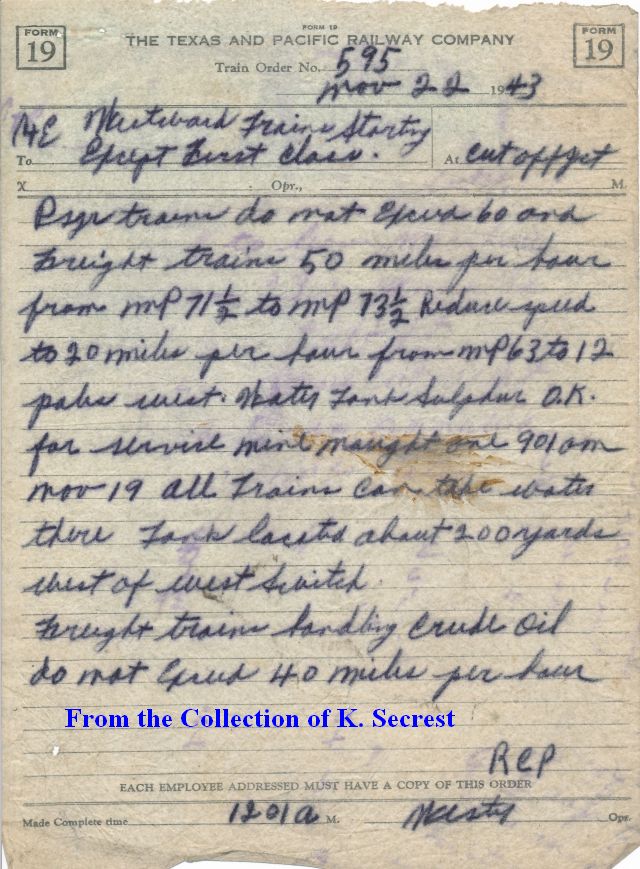 FORM 19
FORM 19 FORM 19
THE TEXAS AND PACIFIC RAILWAY COMPANY
Train Order No. 595
Nov 22 1943
C&E Westward Trains Starting
To Except First Class. At Cut off Jct
X Opr., M.
Psgr trains do not Exceed 60 and
Freight trains 50 miles per hour
from MP 71½ to MP 73½ Reduce speed
to 20 miles per hour from MP 63 to 12
poles west. Water Tank Sulphur O.K.
for service nine naught one 901 am
Nov 19 All Trains Can take water
there Tank located about 200 yards
west of west Switch.
Freight trains handling Crude Oil
do not Exceed 40 miles per hour
From the Collection of K. Secrest
RCP
EACH EMPLOYEE ADDRESSED MUST HAVE A COPY OF THIS ORDER
Made Complete time 1201 a M. Opr.